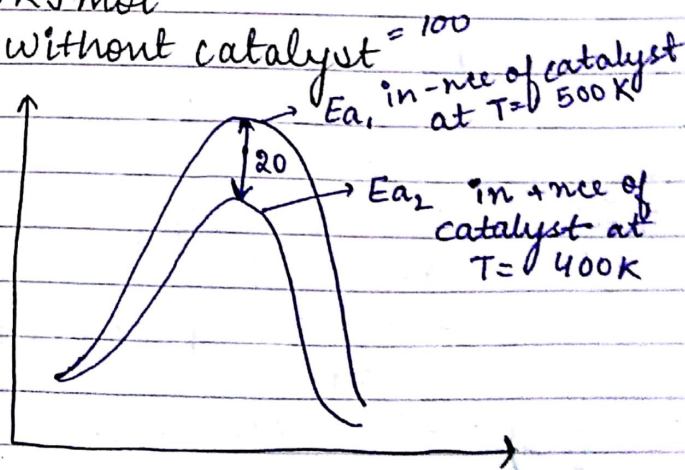 KJ mol
without catalyst = 100
Ea₁ in -nce of catalyst
at T= 500 K
20
Ea₂ in +nce of
catalyst at
T= 400K